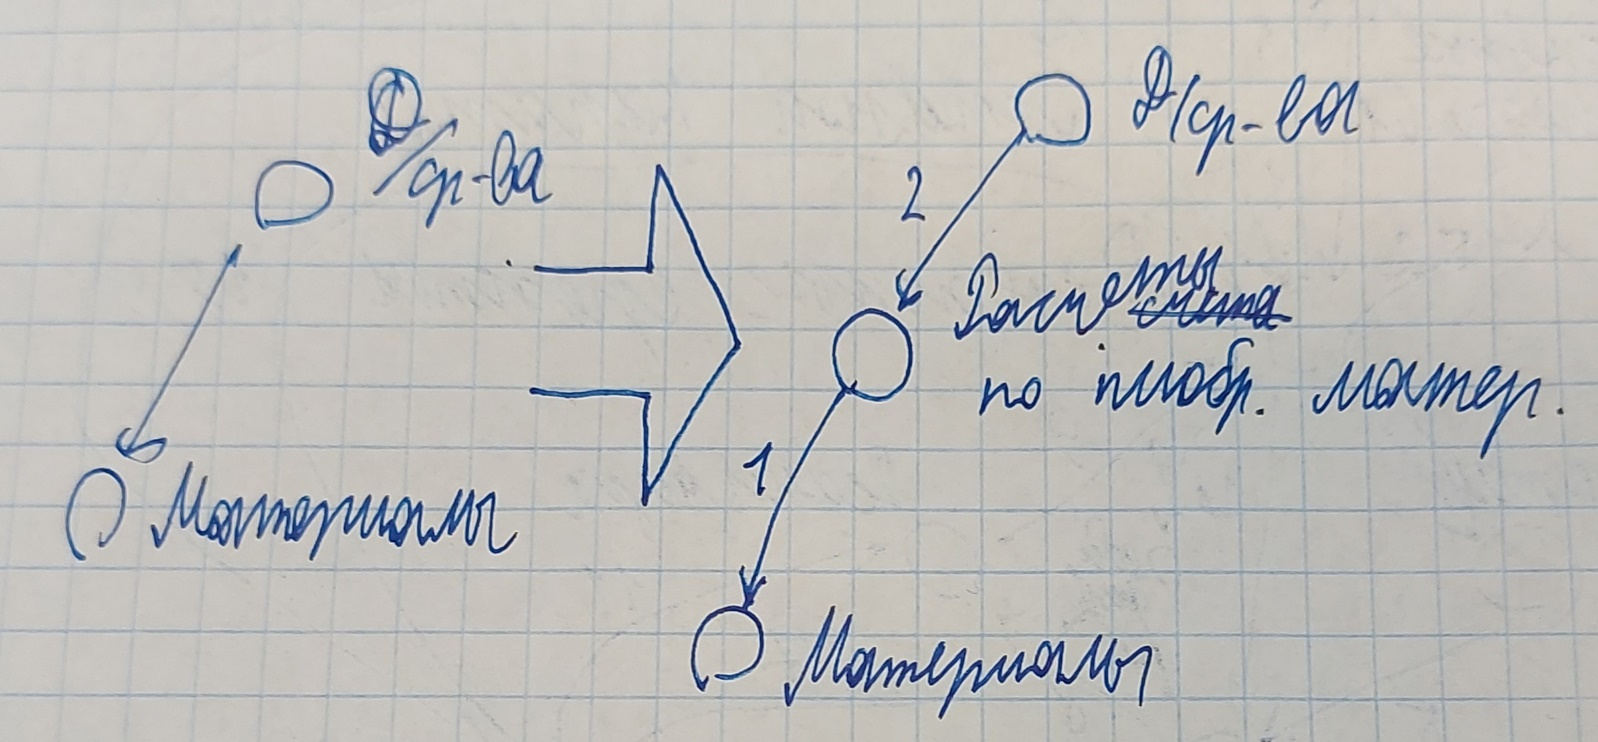 Д/ср-ва
Материалы
Д/ср-ва
2
Расчеты
по приобр. матер.
1
Материалы